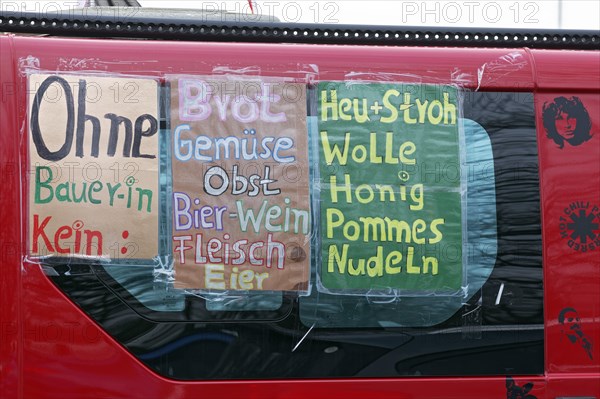 Ohne
Bauer-in
Kein :
Brot
Gemüse
Obst
Bier-Wein
Fleisch
Eier
Heu+Stroh
Wolle
Honig
Pommes
Nudeln